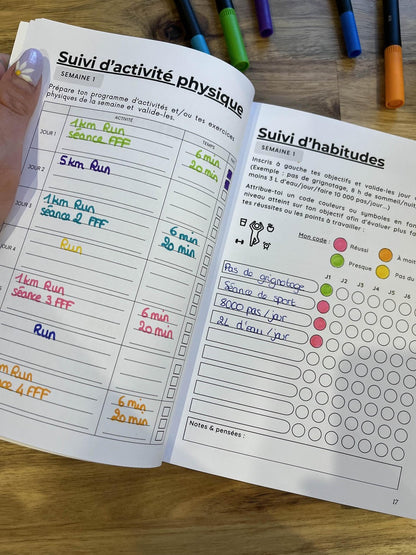 Suivi d'activité physique
SEMAINE 1
Prépare ton programme d'activités et/ou tes exercices
physiques de la semaine et valide-les.
ACTIVITÉ
TEMPS
JOUR 1
1km Run
séance FFF
6 min
20 min
JOUR 2
5km Run
JOUR 3
1km Run
séance 2 FFF
6 min
20 min
JOUR 4
Run
1km Run
séance 3 FFF
6 min
20 min
Run
Run
séance 4 FFF
6 min
20 min
Suivi d'habitudes
SEMAINE 1
Inscris à gauche tes objectifs et valide-les jour
(Exemple : pas de grignotage, 8 h de sommeil/nuit
moins 3 L d'eau/jour/faire 10 000 pas/jour...)
Attribue-toi un code couleurs ou symboles en fon
niveau atteint sur ton objectif afin d'évaluer plus fa
tes réussites ou les points à travailler :
Mon code :
Réussi
À moit
Presque
Pas du
J1 J2 J3 J4 J5 J6
Pas de grignotage
Séance de sport
8000 pas/jour
2L d'eau/jour
Notes & pensées :
17